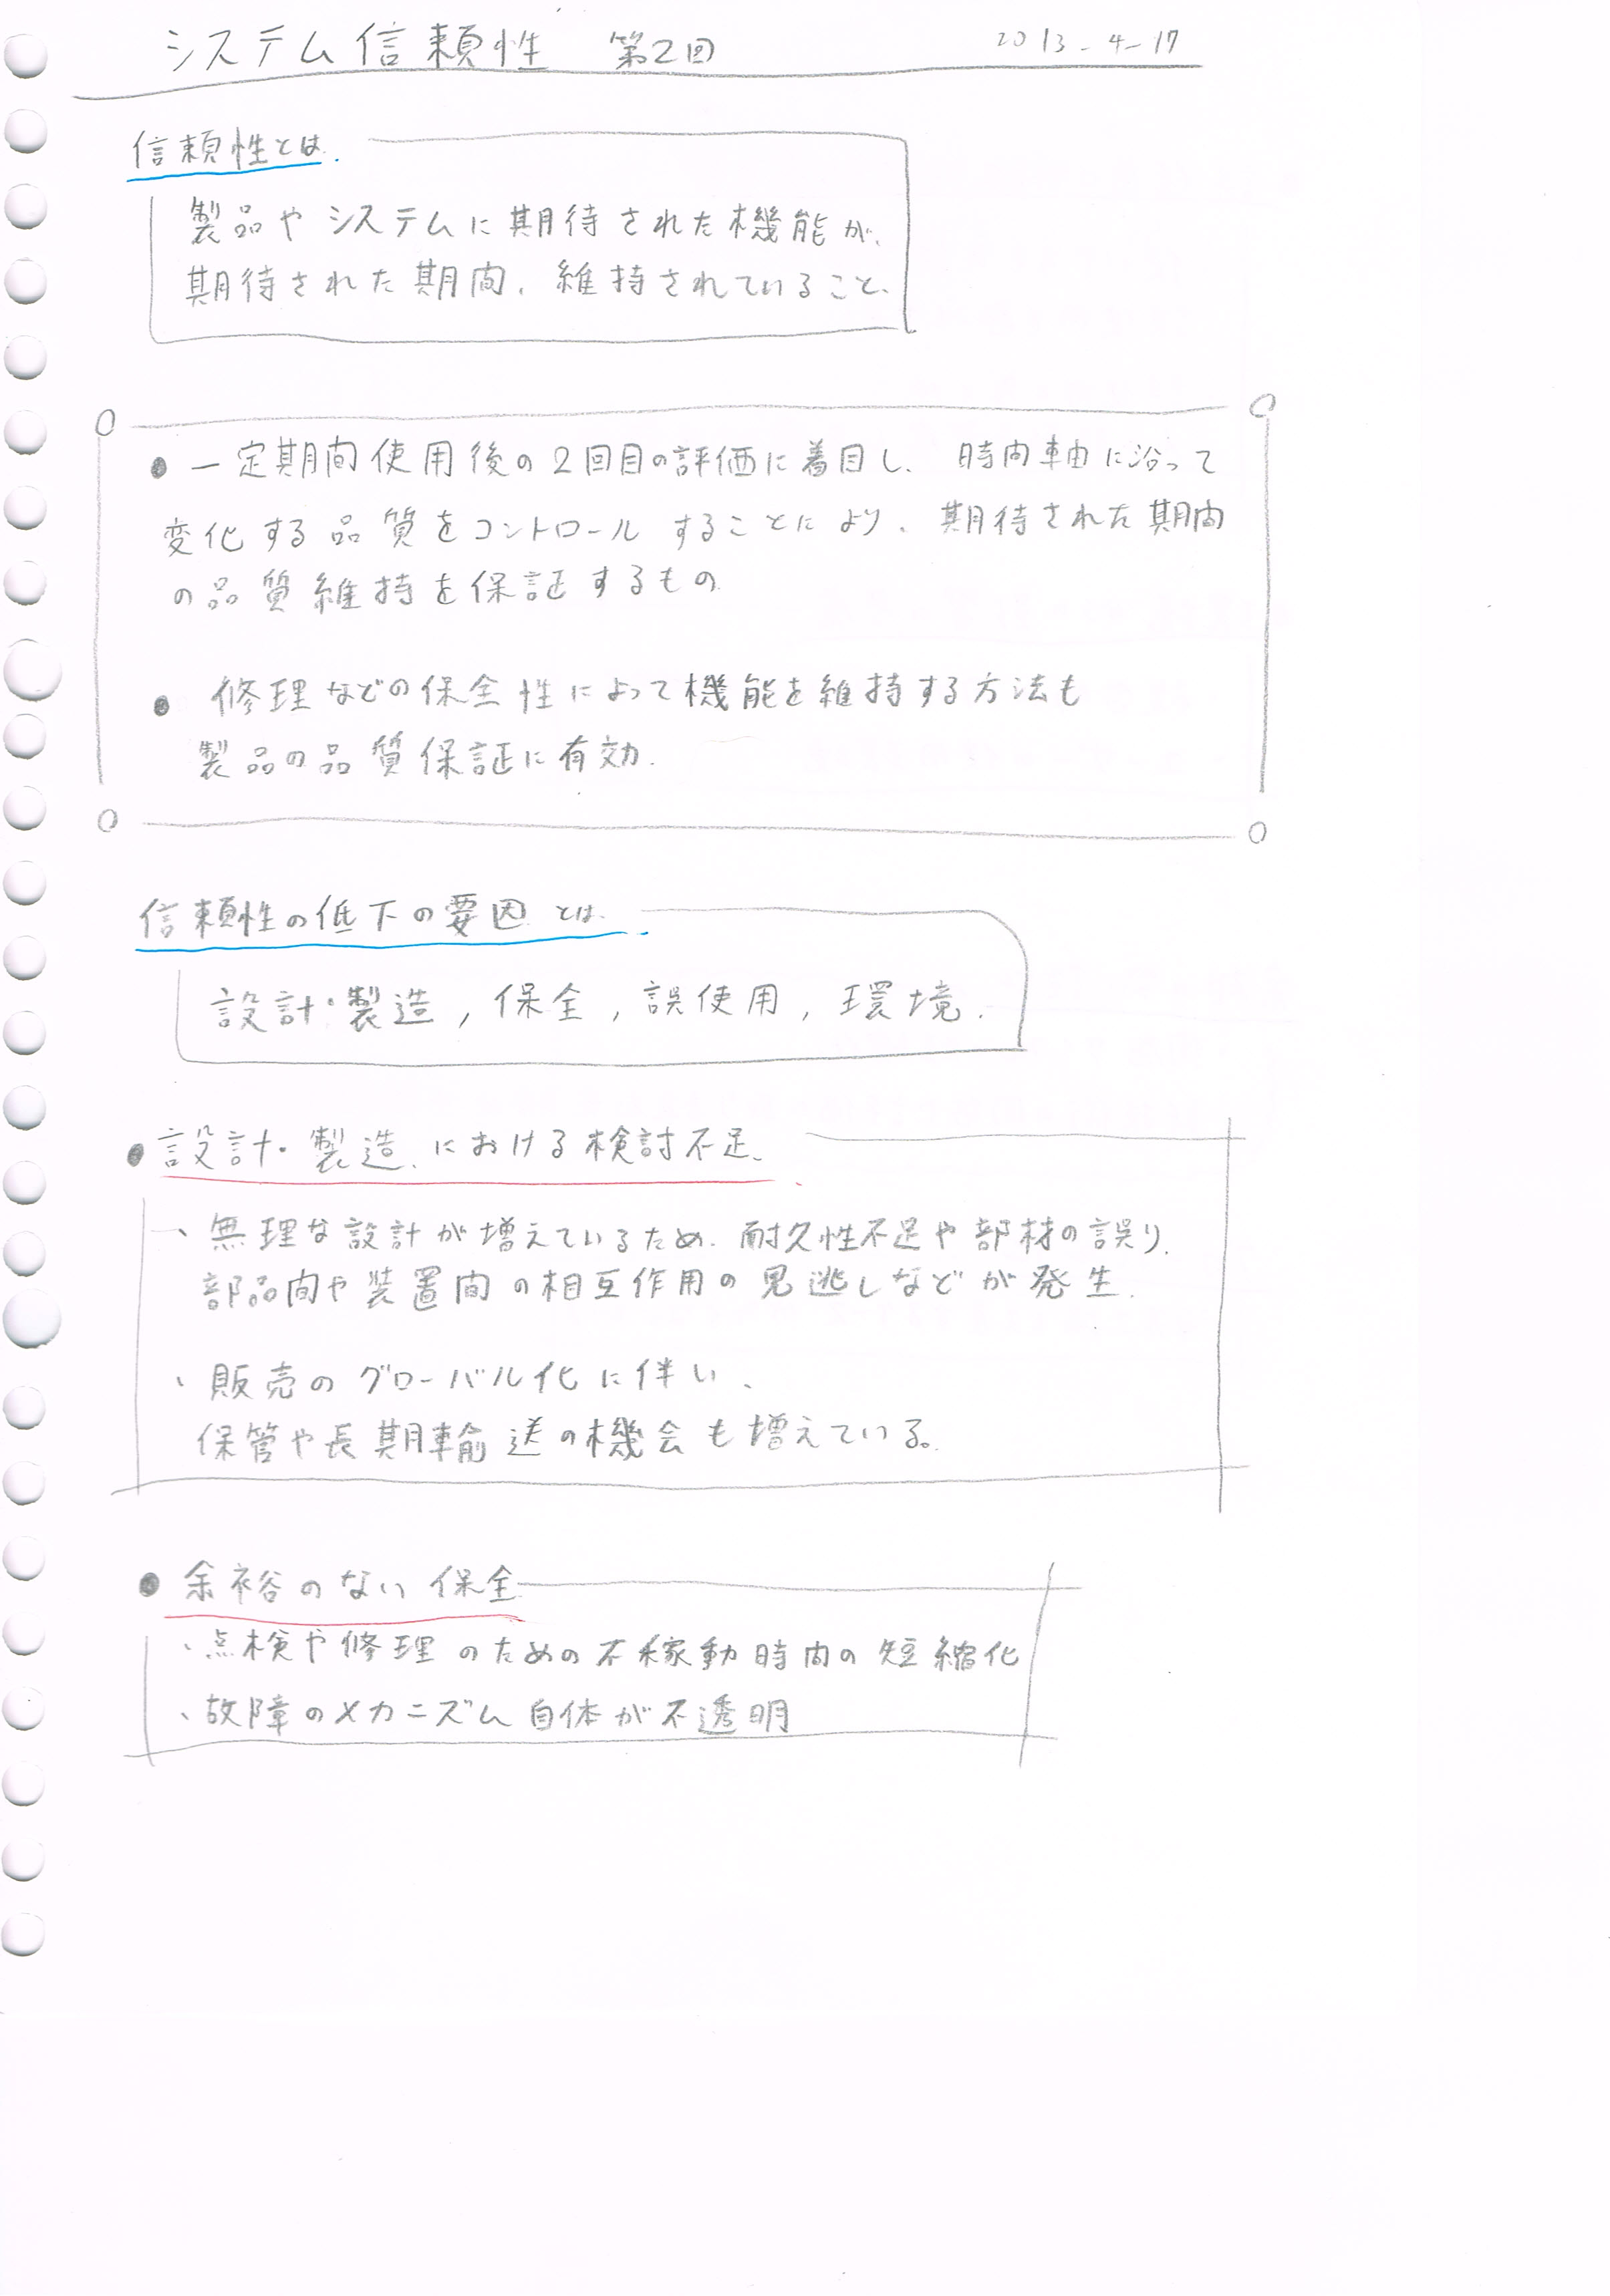 システム信頼性 第2回 2013-4-17
信頼性とは.
製品やシステムに期待された機能が、
期待された期間、維持されていること、
● 一定期間使用後の2回目の評価に着目し、時間軸に沿って
変化する品質をコントロールすることにより、期待された期間
の品質維持を保証するもの
● 修理などの保全性によって機能を維持する方法も
製品の品質保証に有効.
信頼性の低下の要因とは.
設計・製造, 保全, 誤使用, 環境.
● 設計・製造、における検討不足、
、無理な設計が増えているため、耐久性不足や部材の誤り、
部品間や装置間の相互作用の見逃しなどが発生.
、販売のグローバル化に伴い、
保管や長期輸送の機会も増えている。
● 余裕のない保全
、点検や修理のための不稼動時間の短縮化
、故障のメカニズム自体が不透明